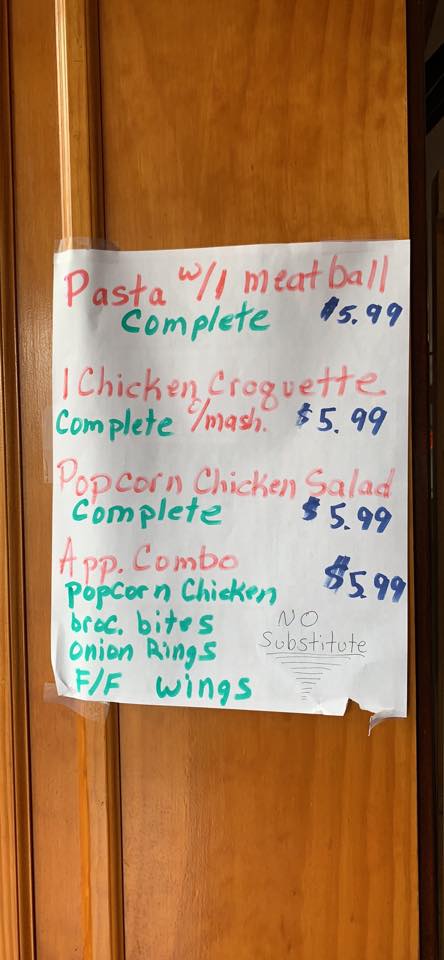 Pasta w/1 meatball
Complete $5.99
1 Chicken Croquette
Complete c/mash. $5.99
Popcorn Chicken Salad
Complete $5.99
App. Combo $5.99
Popcorn Chicken
broc. bites
Onion Rings
F/F wings
NO
Substitute